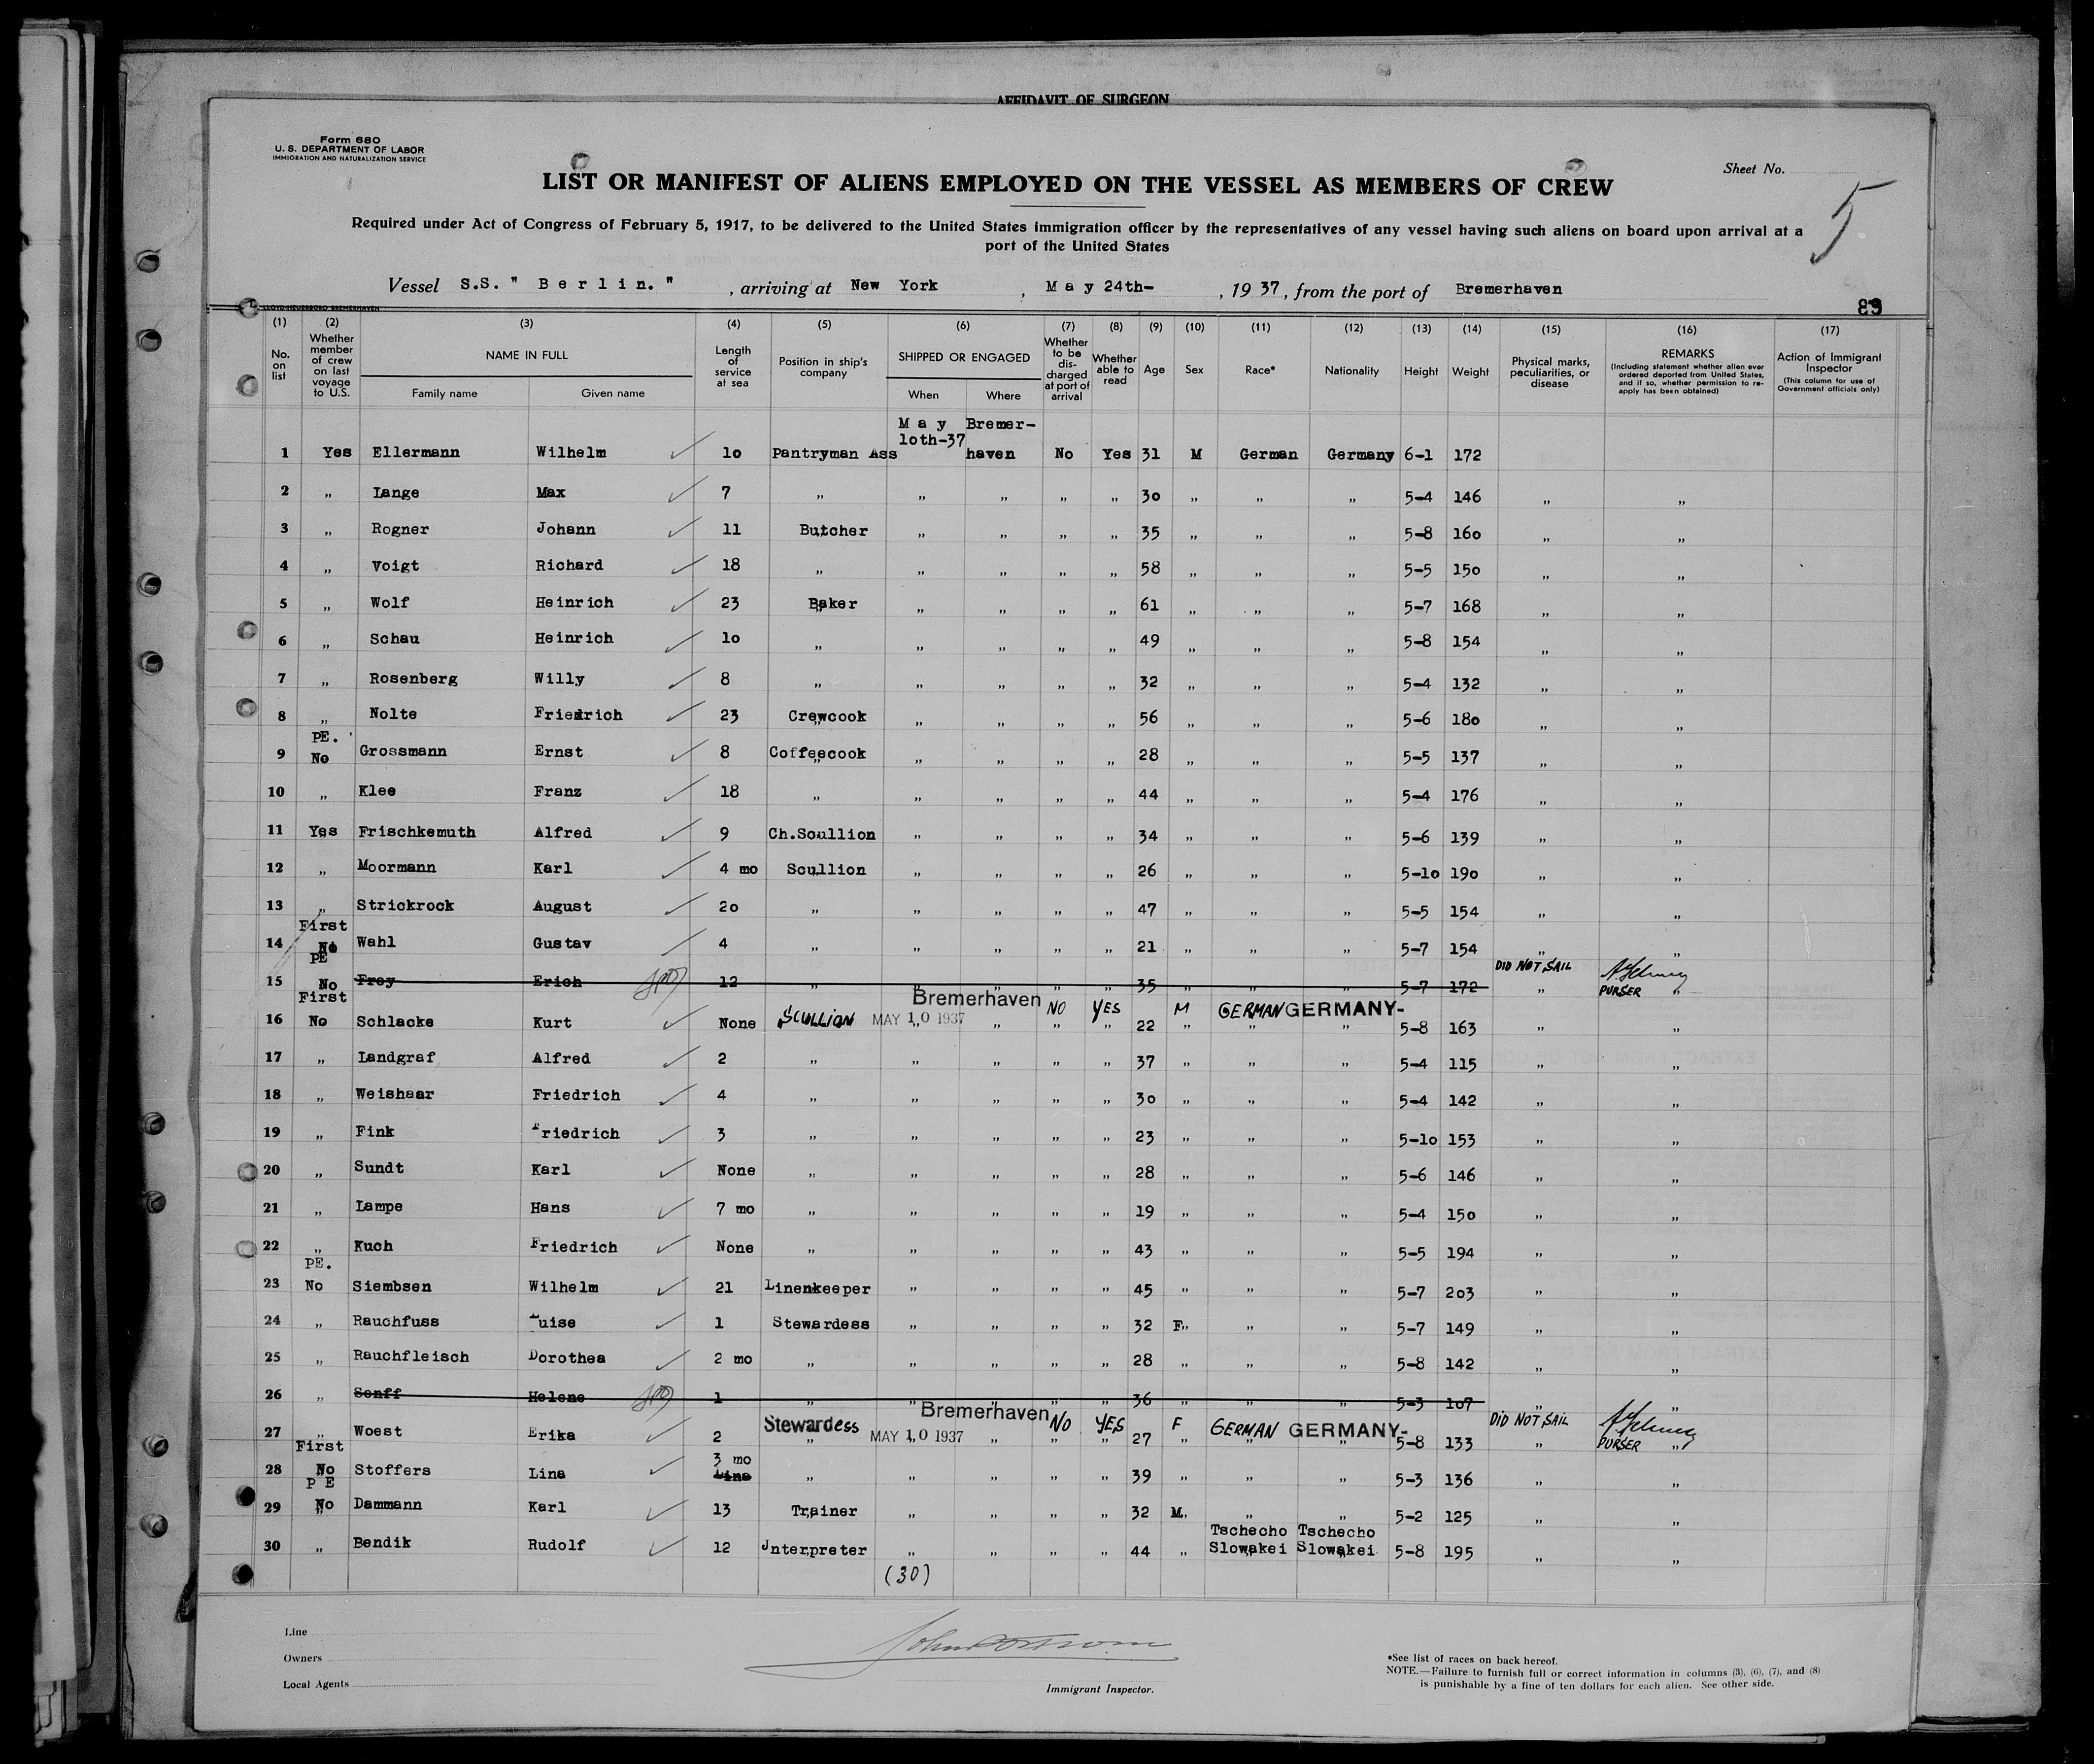 AFFIDAVIT OF SURGEON
Form 680
U. S. DEPARTMENT OF LABOR
IMMIGRATION AND NATURALIZATION SERVICE
Sheet No.
5
LIST OR MANIFEST OF ALIENS EMPLOYED ON THE VESSEL AS MEMBERS OF CREW
Required under Act of Congress of February 5, 1917, to be delivered to the United States immigration officer by the representatives of any vessel having such aliens on board upon arrival at a
port of the United States
Vessel S.S. " B e r l i n. " , arriving at New York , M a y 24th- , 19 37, from the port of Bremerhaven
89
(1) (2) (3) (4) (5) (6) (7) (8) (9) (10) (11) (12) (13) (14) (15) (16) (17)
No. on list
Whether member of crew on last voyage to U.S.
NAME IN FULL
Family name Given name
Length of service at sea
Position in ship's company
SHIPPED OR ENGAGED
When Where
Whether to be discharged at port of arrival
Whether able to read
Age
Sex
Race*
Nationality
Height
Weight
Physical marks, peculiarities, or disease
REMARKS
(Including statement whether alien ever ordered deported from United States, and if so, whether permission to re-apply has been obtained)
Action of Immigrant Inspector
(This column for use of Government officials only)
M a y Bremer-
loth-37
1 Yes Ellermann Wilhelm lo Pantryman Ass haven No Yes 31 M German Germany 6-1 172
2 „ Lange Max 7 „ „ „ „ „ 3o „ „ „ 5-4 146 „ „
3 „ Rogner Johann 11 Butcher „ „ „ „ 35 „ „ „ 5-8 16o „ „
4 „ Voigt Richard 18 „ „ „ „ „ 58 „ „ „ 5-5 15o „ „
5 „ Wolf Heinrich 23 Baker „ „ „ „ 61 „ „ „ 5-7 168 „ „
6 „ Schau Heinrich lo „ „ „ „ „ 49 „ „ „ 5-8 154 „ „
7 „ Rosenberg Willy 8 „ „ „ „ „ 32 „ „ „ 5-4 132 „ „
8 „ Nolte Friedrich 23 Crewcook „ „ „ „ 56 „ „ „ 5-6 18o „ „
PE.
9 No Grossmann Ernst 8 Coffeecook „ „ „ „ 28 „ „ „ 5-5 137 „ „
10 „ Klee Franz 18 „ „ „ „ „ 44 „ „ „ 5-4 176 „ „
11 Yes Frischkemuth Alfred 9 Ch.Scullion „ „ „ „ 34 „ „ „ 5-6 139 „ „
12 „ Moormann Karl 4 mo Scullion „ „ „ „ 26 „ „ „ 5-1o 19o „ „
13 „ Strickrock August 2o „ „ „ „ „ 47 „ „ „ 5-5 154 „ „
First
14 No Wahl Gustav 4 „ „ „ „ „ 21 „ „ „ 5-7 154 „ „
PE DID NOT SAIL
15 No Frey Erich 12 „ „ „ „ „ 35 „ „ „ 5-7 172 „ PURSER „
First Bremerhaven NO YES M GERMAN GERMANY-
16 No Schlacke Kurt None SCULLION MAY 10 1937 „ „ „ 22 „ „ „ 5-8 163 „ „
17 „ Landgraf Alfred 2 „ „ „ „ „ 37 „ „ „ 5-4 115 „ „
18 „ Weishaar Friedrich 4 „ „ „ „ „ 3o „ „ „ 5-4 142 „ „
19 „ Fink Friedrich 3 „ „ „ „ „ 23 „ „ „ 5-1o 153 „ „
20 „ Sundt Karl None „ „ „ „ „ 28 „ „ „ 5-6 146 „ „
21 „ Lampe Hans 7 mo „ „ „ „ „ 19 „ „ „ 5-4 15o „ „
22 „ Kuch Friedrich None „ „ „ „ „ 43 „ „ „ 5-5 194 „ „
PE.
23 No Siembsen Wilhelm 21 Linenkeeper „ „ „ „ 45 „ „ „ 5-7 2o3 „ „
24 „ Rauchfuss Luise 1 Stewardess „ „ „ „ 32 F „ „ 5-7 149 „ „
25 „ Rauchfleisch Dorothea 2 mo „ „ „ „ „ 28 „ „ „ 5-8 142 „ „
26 „ Senff Helene 1 „ „ „ „ „ 36 „ „ „ 5-3 1o7 „ „
Stewardess Bremerhaven NO YES F GERMAN GERMANY- DID NOT SAIL
27 „ Woest Erika 2 „ MAY 10 1937 „ „ „ 27 „ „ „ 5-8 133 „ PURSER „
First 3 mo
28 No Stoffers Lina Lina „ „ „ „ „ 39 „ „ „ 5-3 136 „ „
P E
29 No Dammann Karl 13 Trainer „ „ „ „ 32 M „ „ 5-2 125 „ „
Tschecho Tschecho
30 „ Bendik Rudolf 12 Jnterpreter „ „ „ „ 44 „ Slowakei Slowakei 5-8 195 „ „
(30)
Line
Owners
Local Agents
Immigrant Inspector.
*See list of races on back hereof.
NOTE.—Failure to furnish full or correct information in columns (3), (6), (7), and (8)
is punishable by a fine of ten dollars for each alien. See other side.